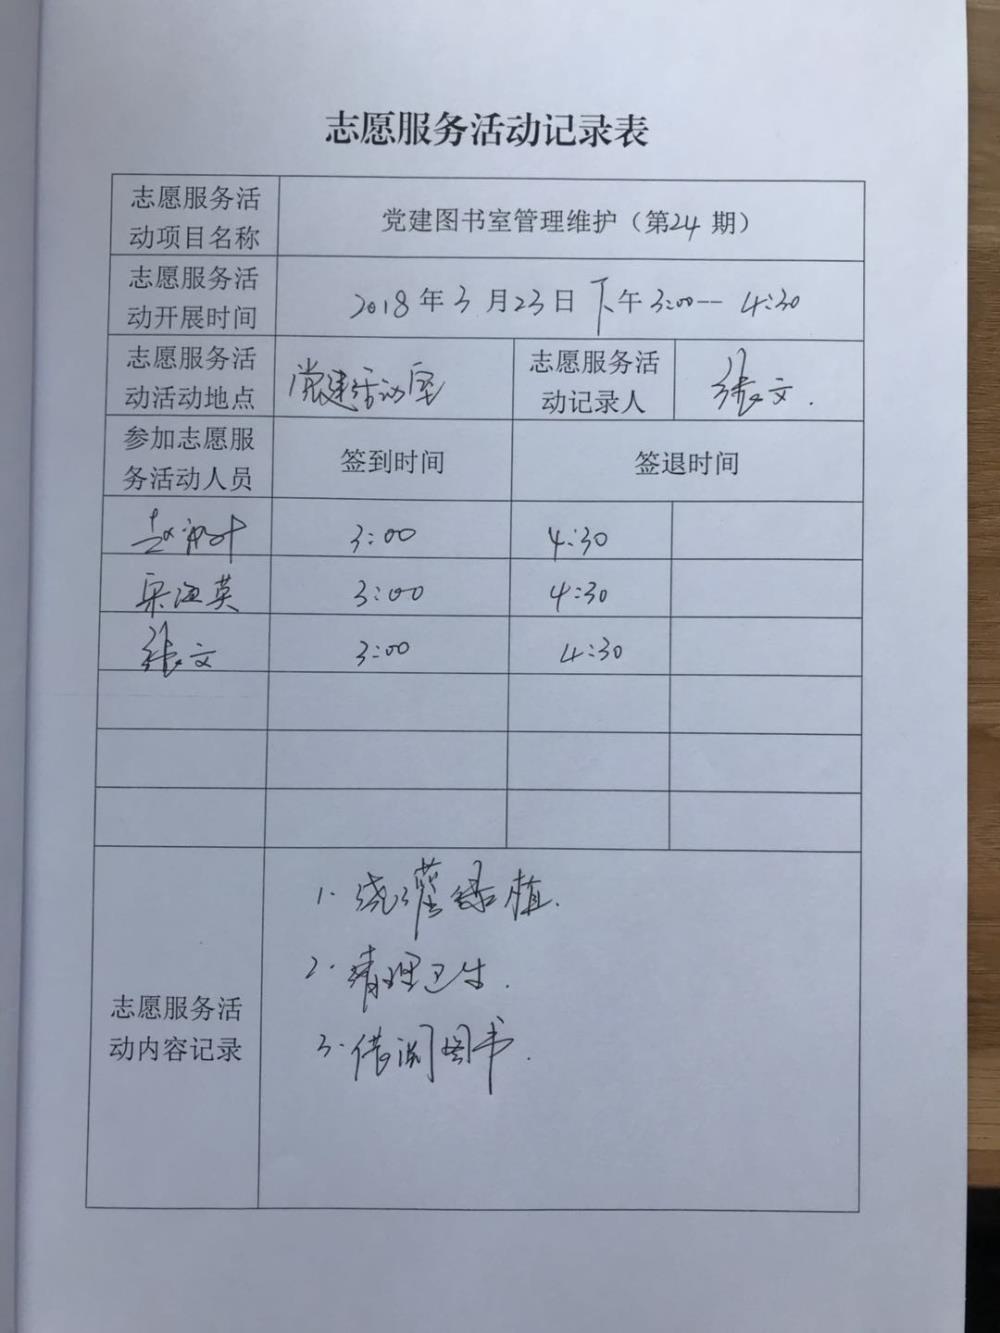 志愿服务活动记录表
志愿服务活
动项目名称
党建图书室管理维护（第24 期）
志愿服务活
动开展时间
2018年3月23日 下午3:00— 4:30
志愿服务活
动活动地点
党建活动室
志愿服务活
动记录人
张文.
参加志愿服
务活动人员
签到时间
签退时间
3:00
4:30
英
3:00
4:30
张文
3:00
4:30
志愿服务活
动内容记录
1.浇灌绿植.
2.清理卫生.
3.借阅图书.